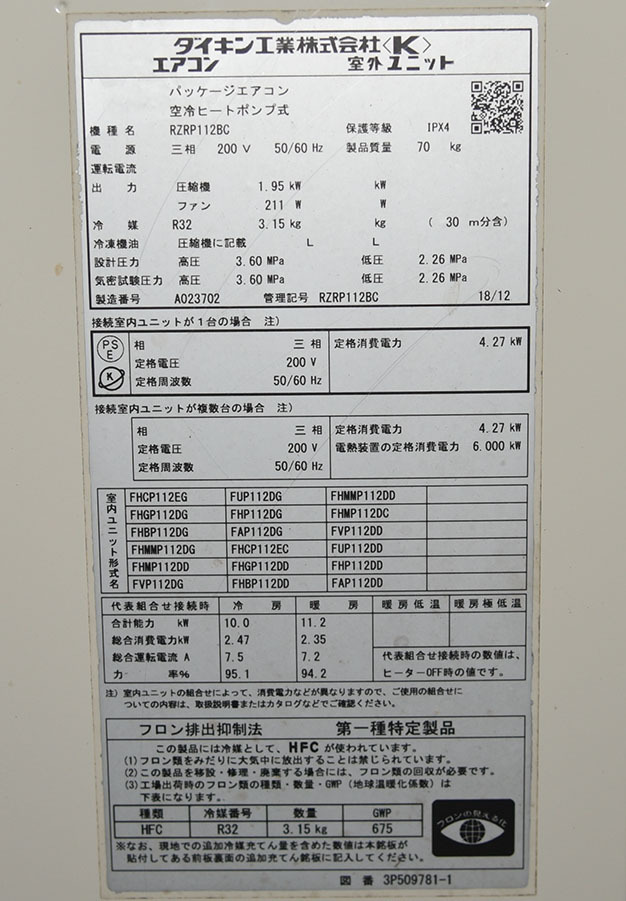 ダイキン工業株式会社〈K〉
エアコン 室外ユニット
パッケージエアコン
空冷ヒートポンプ式
機種名 RZRP112BC 保護等級 IPX4
電源 三相 200 V 50/60 Hz 製品質量 70 kg
運転電流
出力 圧縮機 1.95 kW kW
ファン 211 W W
冷媒 R32 3.15 kg kg ( 30 m分含)
冷凍機油 圧縮機に記載 L L
設計圧力 高圧 3.60 MPa 低圧 2.26 MPa
気密試験圧力 高圧 3.60 MPa 低圧 2.26 MPa
製造番号 A023702 管理記号 RZRP112BC 18/12
接続室内ユニットが1台の場合 注)
PSE 相 三相 定格消費電力 4.27 kW
定格電圧 200 V
K 定格周波数 50/60 Hz
接続室内ユニットが複数台の場合 注)
相 三相 定格消費電力 4.27 kW
定格電圧 200 V 電熱装置の定格消費電力 6.000 kW
定格周波数 50/60 Hz
室内ユニット形式名
FHCP112EG FUP112DG FHMMP112DD
FHGP112DG FHP112DG FHMP112DC
FHBP112DG FAP112DG FVP112DD
FHMMP112DG FHCP112EC FUP112DD
FHMP112DD FHGP112DD FHP112DD
FVP112DG FHBP112DD FAP112DD
代表組合せ接続時 冷房 暖房 暖房低温 暖房極低温
合計能力 kW 10.0 11.2
総合消費電力kW 2.47 2.35
総合運転電流 A 7.5 7.2 代表組合せ接続時の数値は、
力率% 95.1 94.2 ヒーターOFF時の値です。
注) 室内ユニットの組合せによって、消費電力などが異なりますので、ご使用の組合せに
ついての内容は、取扱説明書またはカタログなどでご確認ください。
フロン排出抑制法 第一種特定製品
この製品には冷媒として、HFC が使われています。
(1)フロン類をみだりに大気中に放出することは禁じられています。
(2)この製品を移設・修理・廃棄する場合には、フロン類の回収が必要です。
(3)工場出荷時のフロン類の種類・数量・GWP (地球温暖化係数) は
下表になります。
種類 冷媒番号 数量 GWP
HFC R32 3.15 kg 675
フロンの見える化
※なお、現地での追加冷媒充てん量を含めた数値は本銘板が
貼付してある前板裏面の追加充てん銘板に記入してください。
図番 3P509781-1